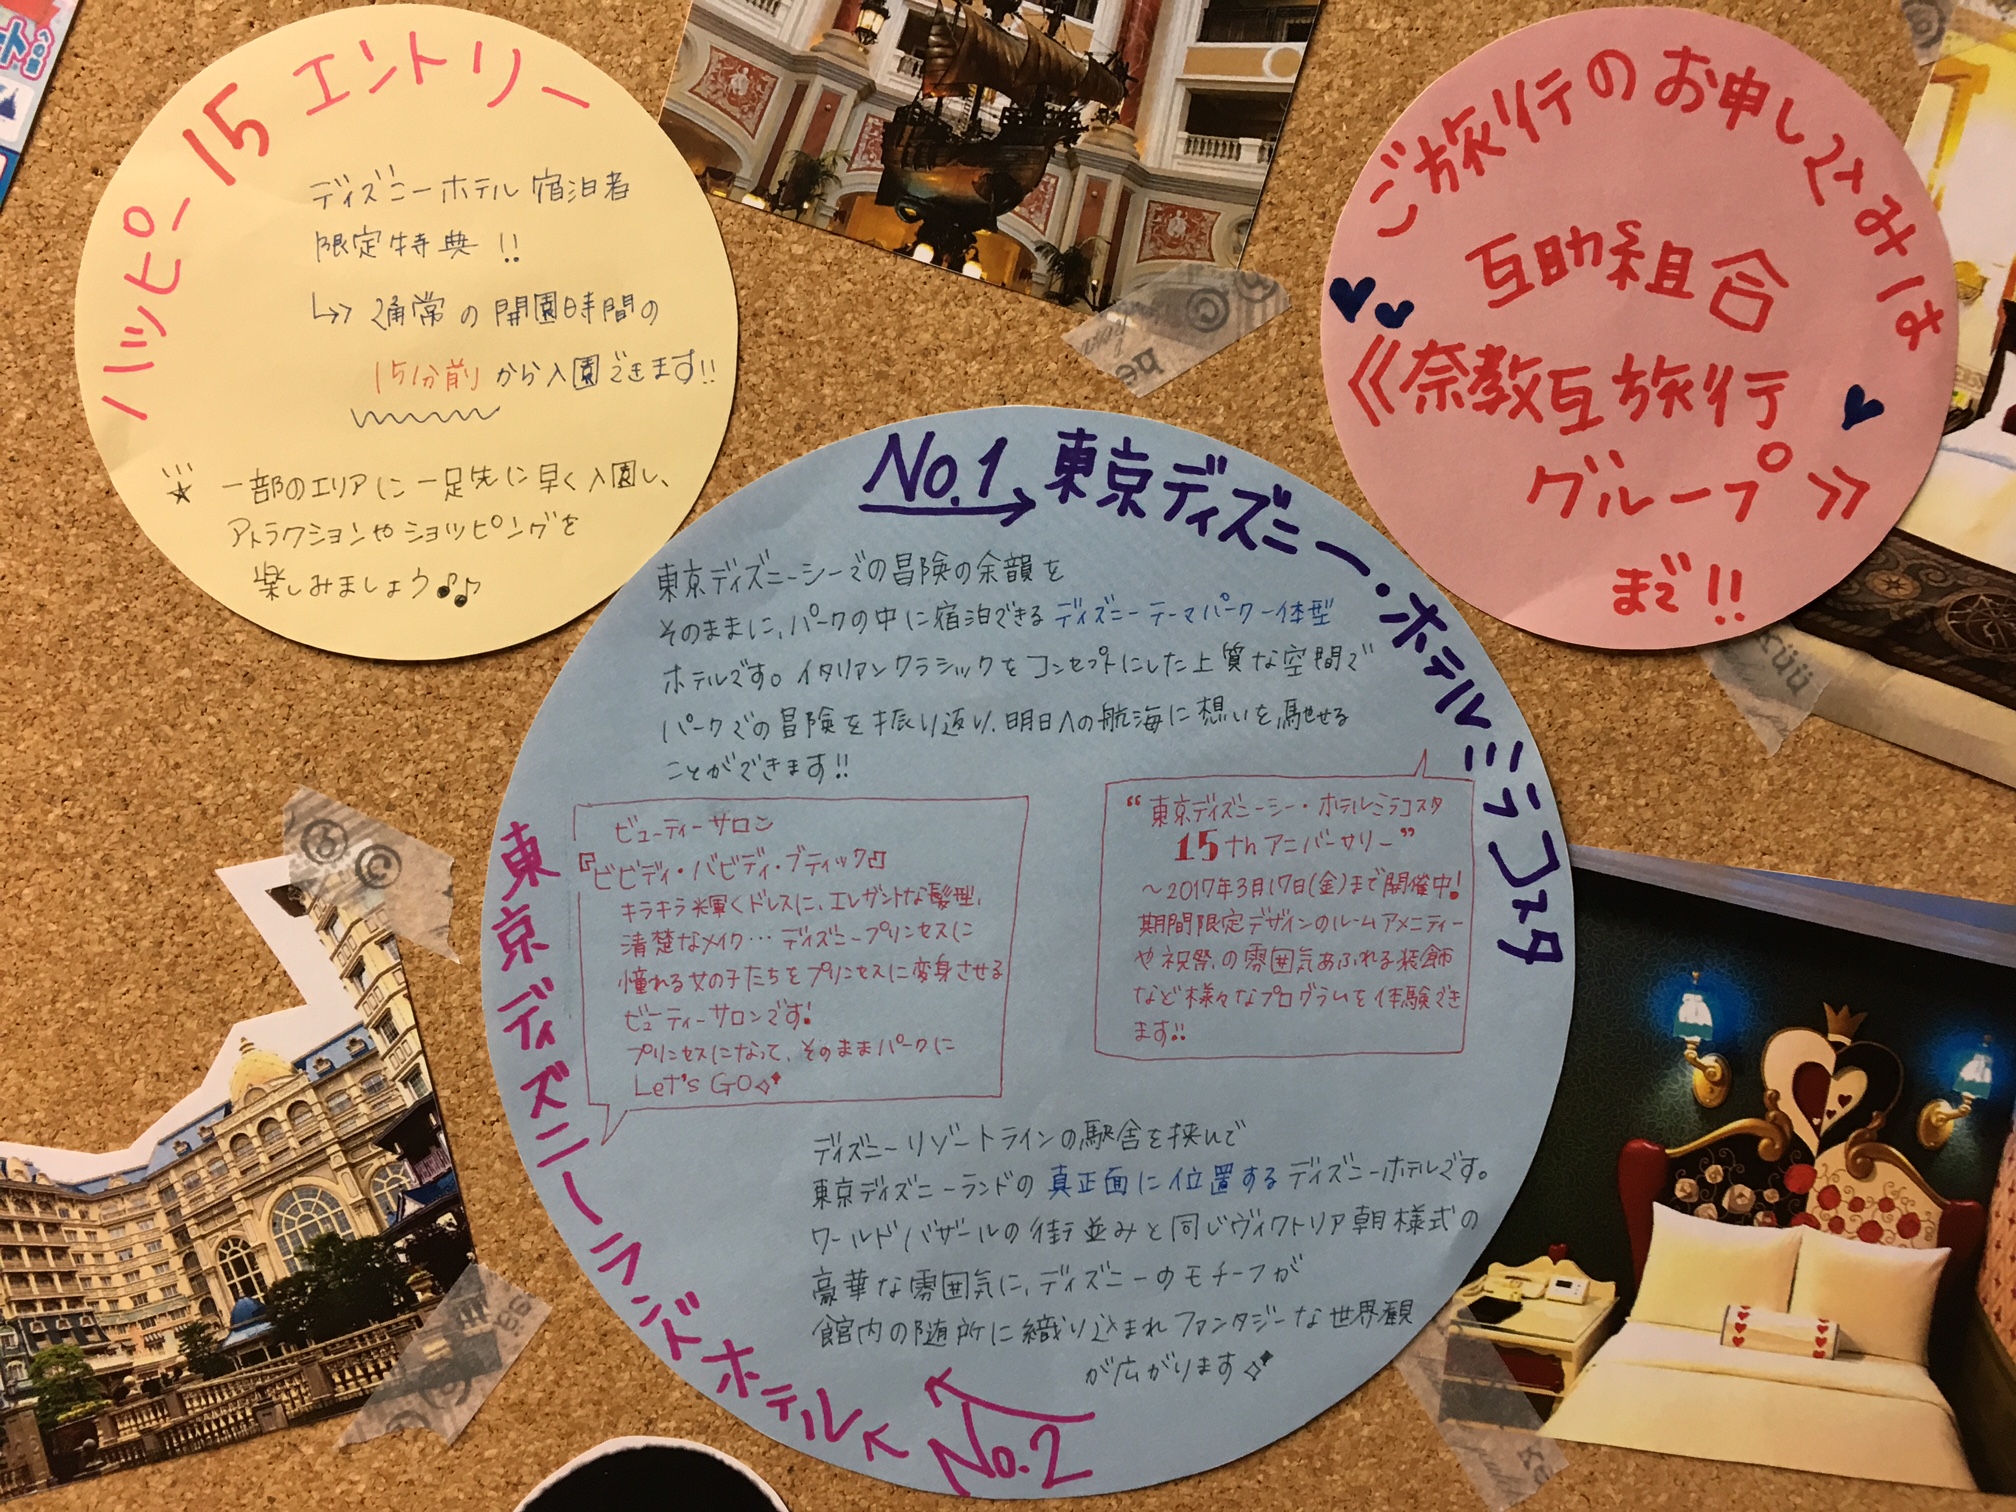 ハッピー15 エントリー
ディズニーホテル宿泊者
限定特典!!
↳ 通常の開園時間の
15分前から入園できます!!
☆ 一部のエリアに一足先に早く入園し、
アトラクションやショッピングを
楽しみましょう♪♫
ご旅行のお申し込みは
互助組合
《奈教互旅行
グループ》
まで!!
No.1→東京ディズニー・ホテルミラコスタ
東京ディズニーシーでの冒険の余韻を
そのままに、パークの中に宿泊できるディズニーテーマパーク一体型
ホテルです。イタリアンクラシックをコンセプトにした上質な空間で
パークでの冒険を振り返り、明日への航海に想いを馳せる
ことができます!!
“東京ディズニーシー・ホテルミラコスタ
15thアニバーサリー”
～2017年3月17日(金)まで開催中!
期間限定デザインのルームアメニティー
や祝祭の雰囲気あふれる装飾
など様々なプログラムを体験でき
ます!!
ビューティーサロン
『ビビディ・バビディ・ブティック』
キラキラ輝くドレスに、エレガントな髪型、
清楚なメイク…ディズニープリンセスに
憧れる女の子たちをプリンセスに変身させる
ビューティーサロンです!
プリンセスになって、そのままパークに
Let's GO
東京ディズニーランドホテル
No.2
ディズニーリゾートラインの駅舎を挟んで
東京ディズニーランドの真正面に位置するディズニーホテルです。
ワールドバザールの街並みと同じヴィクトリア朝様式の
豪華な雰囲気に、ディズニーのモチーフが
館内の随所に織り込まれファンタジーな世界観
が広がります